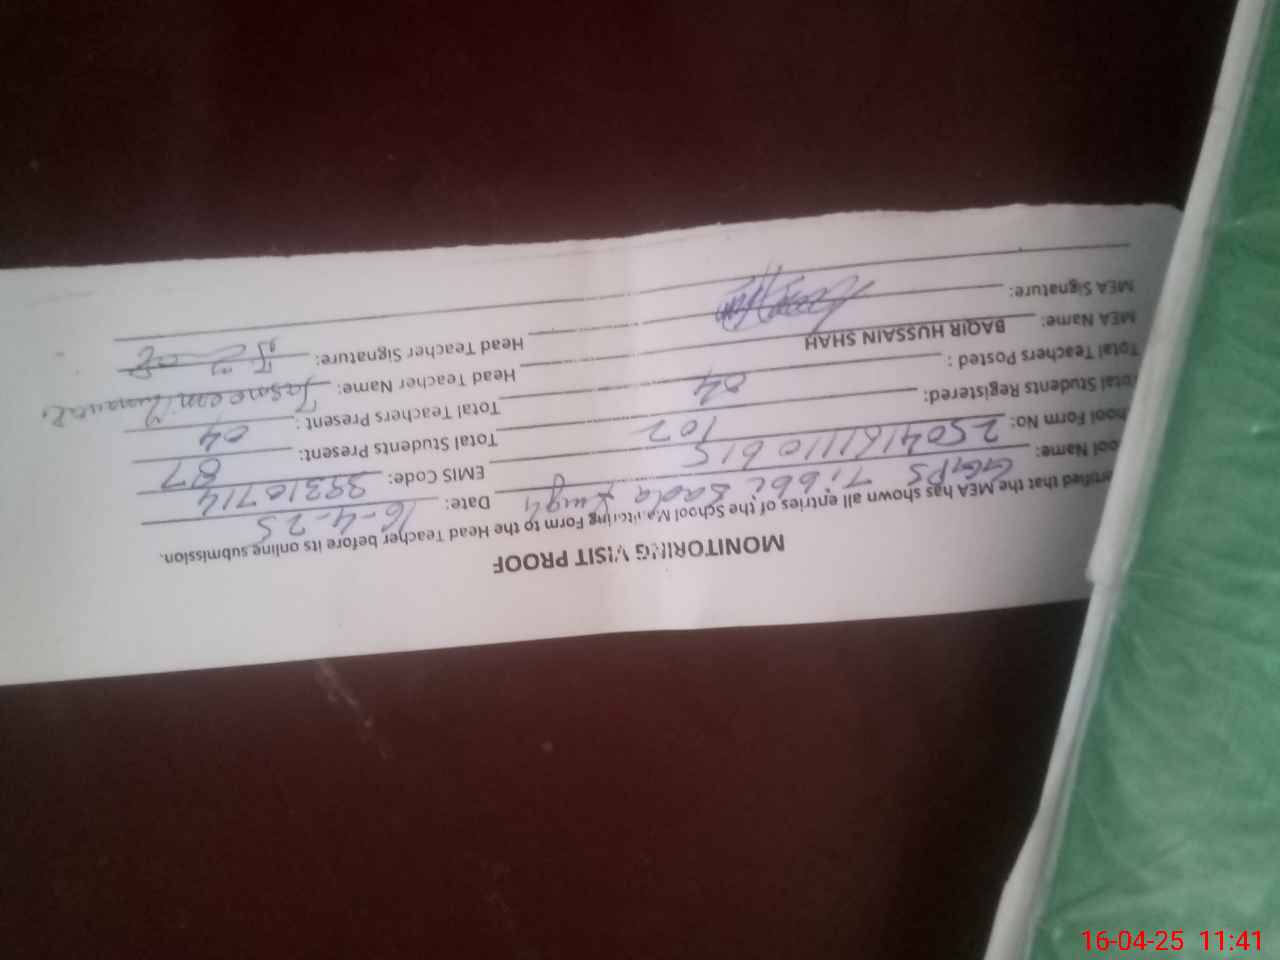 MONITORING VISIT PROOF
ertified that the MEA has shown all entries of the School Monitoring Form to the Head Teacher before its online submission.
ool Name: GGPS Tibbi Sada Date: 16-4-25
hool Form No: 2504161110615 EMIS Code: 39310714
otal Students Registered: 102 Total Students Present: 87
Total Teachers Posted : 04 Total Teachers Present : 04
MEA Name: BAQIR HUSSAIN SHAH Head Teacher Name: Tasneem
MEA Signature: Head Teacher Signature:
16-04-25 11:41